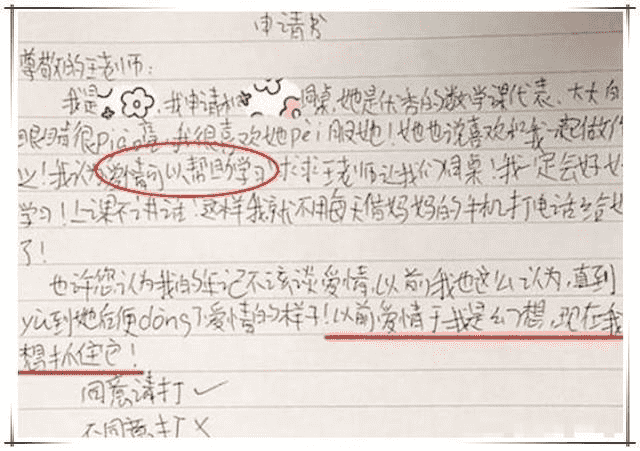 申请书
尊敬的王老师：
我是，我申请和同桌，她是优秀的数学课代表、大大的
眼睛很piao亮，我很喜欢她pei服她！她也说喜欢和我一起做作
业！我认为爱情可以帮助学习！求求王老师让我们同桌！我一定会好好
学习！上课不讲话！这样我就不用每天借妈妈的手机打电话给她
了！
也许您认为我的年记不该谈爱情，以前我也这么认为，直到
yù到她后便dǒng了爱情的样子！以前爱情于我是幻想，现在我
想抓住它！
同意请打✓
不同意打×